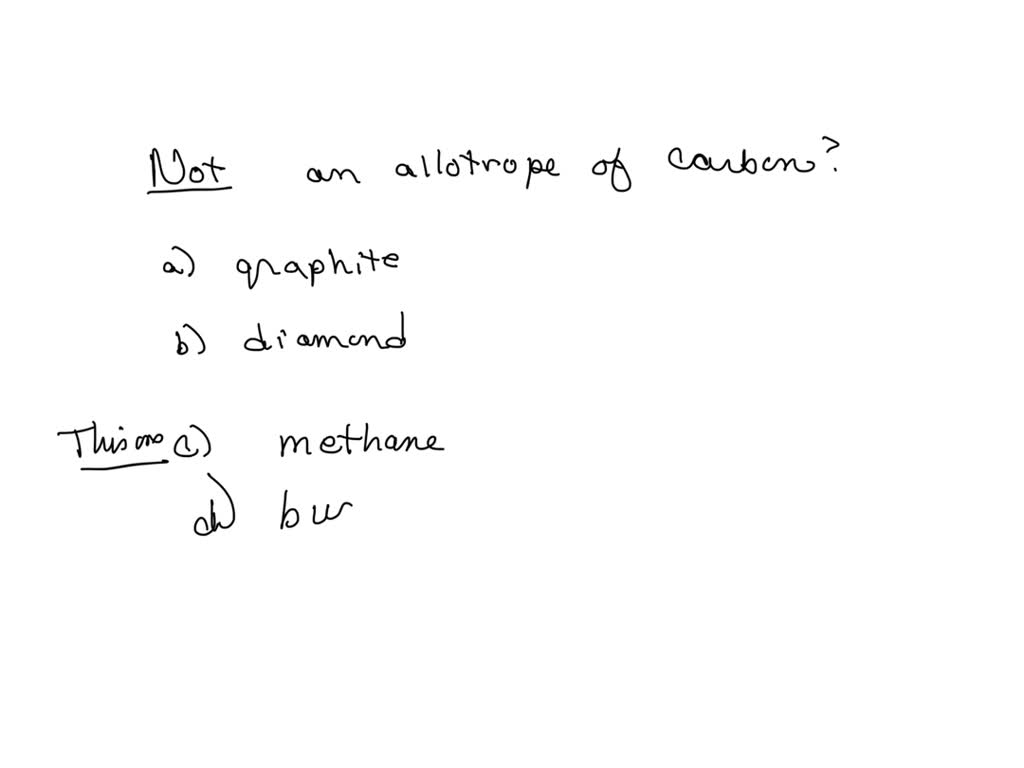 Not an allotrope of carbon?
a) graphite
b) diamond
This one c) methane
d) bu